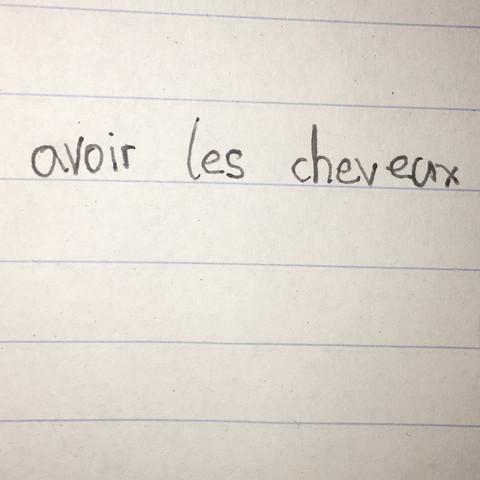 avoir les cheveux